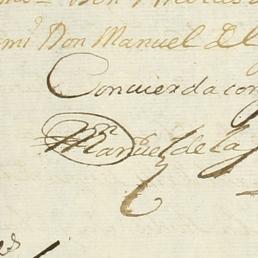 Don
mi Don Manuel Del
Concuerda con
Manuel de la